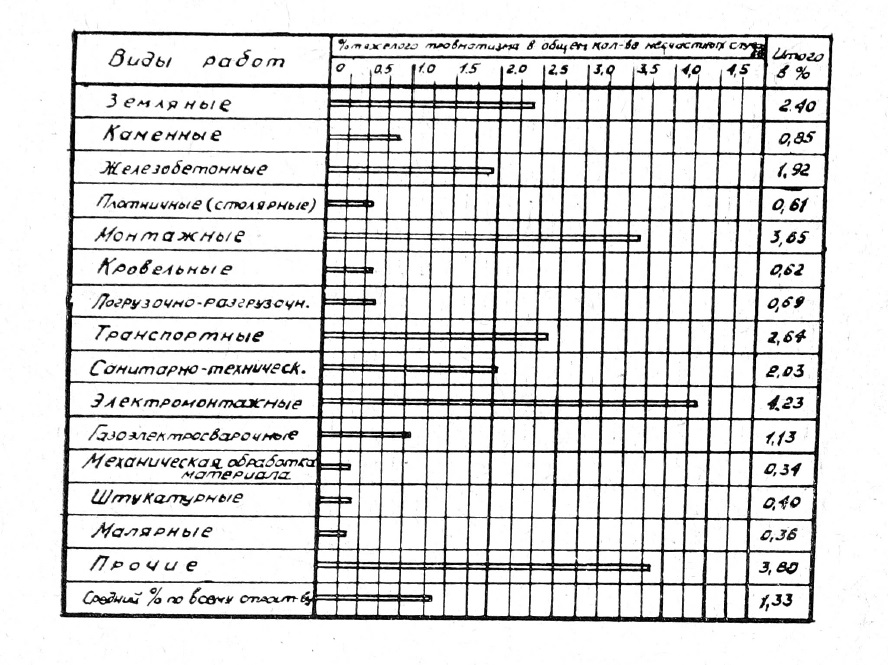 Виды работ
% тяжелого травматизма в общем кол-ве несчастных случ
Итого
в %
0 0.5 1.0 1.5 2.0 2.5 3,0 3,5 4,0 4,5
Земляные 2.40
Каменные 0,85
Железобетонные 1,92
Плотничные (столярные) 0,61
Монтажные 3,65
Кровельные 0,62
Погрузочно-разгрузочн. 0,69
Транспортные 2,64
Санитарно-техническ. 2,03
Электромонтажные 4.23
Газоэлектросварочные 1,13
Механическая обработка
материала 0,34
Штукатурные 0,40
Малярные 0,36
Прочие 3,80
Средний % по всему строит-ву 1,33